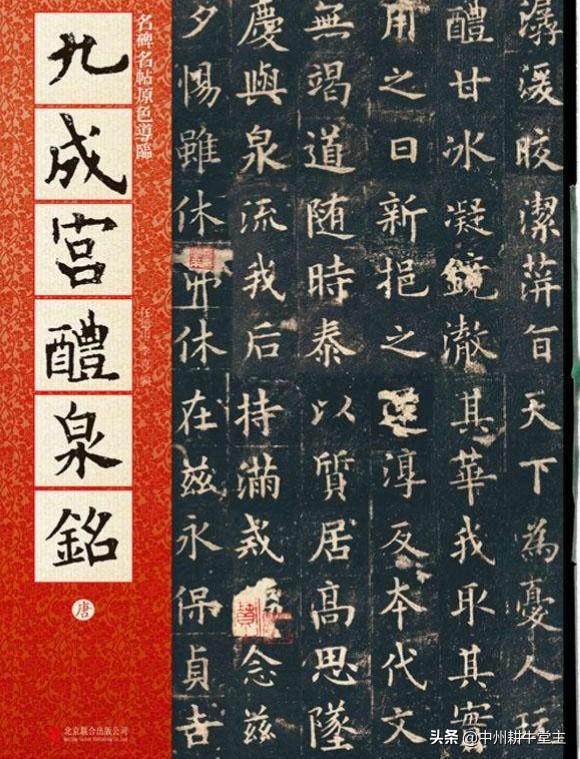 名碑名帖原色導臨
九成宮醴泉銘
唐
北京联合出版公司
潺湲皎潔萍旨天下為憂人玩
醴甘冰凝鏡澈其華我取其實
用之日新挹之還淳反本代文
無竭道随時泰以質居高思墜
慶與泉流我后持滿戒念兹
夕惕雖休弗休在兹永保貞吉
头条 @中州耕牛堂主